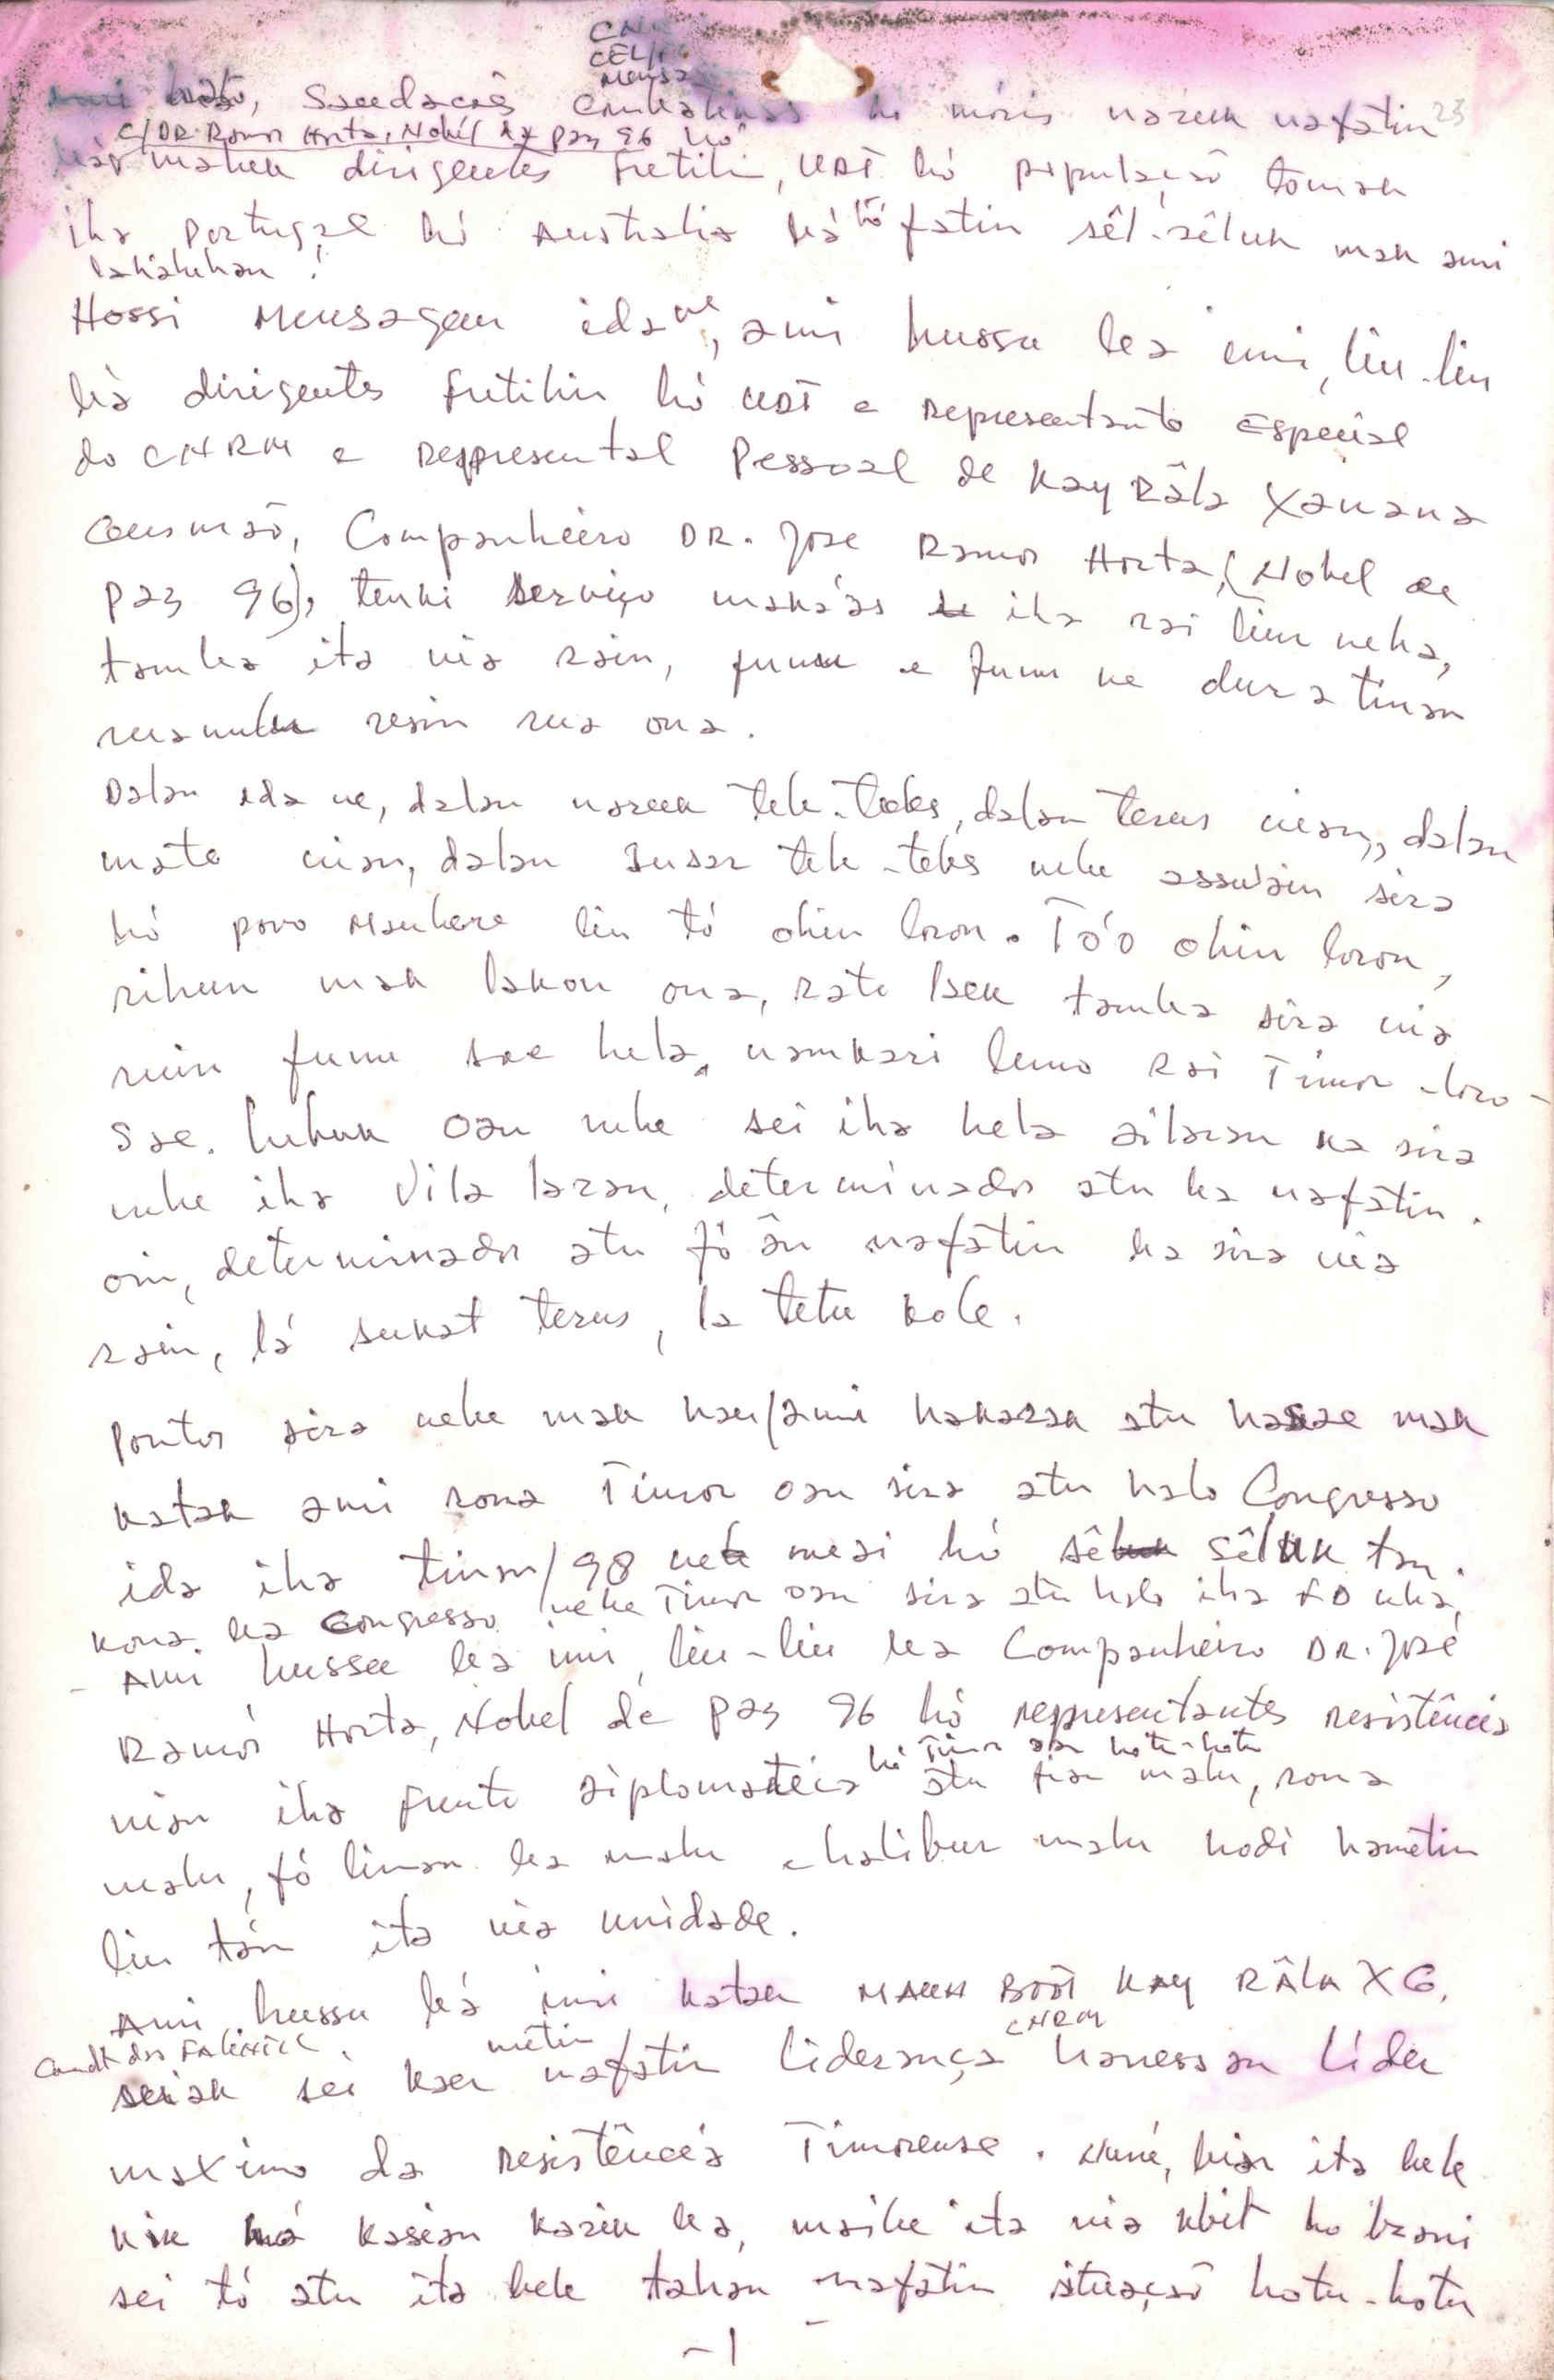 CN
CEL/F
Mensa
23
Ami hato, Saudacoēs Combativas ho móris nározek nafatin
C/DR. Ramos Horta, Nobél da paz 96 hó
bá maluk dirigentes Fretilin, UDT hó populaçaō tomak
iha Portugal hó Australia bá hó fatin sêl-sêluk mak ami
lahatuhan!
Hossi Mensagem ida ne, ami hussu ba imi, liu-liu
bá dirigentes Fretilin hó UDT e Representante Especial
do CNRM e Representál Pessoal de Kay Râla Xanana
Gusmaō, Companheiro DR. Jose Ramos Horta, (Nobel de
Paz 96), tenki serviço maká'as iha rai liur neba,
tamba ita nia rain, funu e funu ne dura tinan
ruanulu resin rua ona.
Dalan ida ne, dalan naruk teb-tebs, dalan terus nian, dalan
mate nian, dalan susar teb-tebs nebe assuwain sira
hó povo Maubere liu tó ohin loron. Tó'o ohin loron,
rihun mak lakon ona, rate laek tamba sira nia
ruin funu sae hela, namkari lemo Rai Timor-loro-
Sae. lubuk oan nebe sei iha hela ailaran ka sira
nebe iha Vila laran, determinados atu ba nafatin.
oin, determinados atu fó ân nafatin ba sira nia
rain, lá sukat terus, la tetu kole.
Pontos sira nebe mak hau/ami hakarak atu hasae mak
katak ami rona Timor oan sira atu halo Congresso
ida iha tinan/98 nebe mai hó sêluk tan.
kona ba Congresso nebe Timor oan sira atu halo iha neba,
- Ami hussu ba imi, liu-liu ba Companheiro DR. José
Ramos Horta, Nobel de Paz 96 hó representantes resistência
nian iha Frente diplomatica hó Timor oan hotu-hotu atu fiar malu, rona
malu, fó liman ba malu e halibur malu hodi hametin
liu tán ita nia unidade.
Ami hussu bá imi katak MAUN BOOT KAY RÂLA XG,
Cmdt das Falintil
sei kaer metin nafatin liderança CNRM hanessan Líder
maximo da Resistência Timorense. Nuné, bian ita bele
kiik ká kasian karik ba, maibe ita nia kbit ho brani
sei tó atu ita bele tahan nafatin situaçaō hotu-hotu
-1